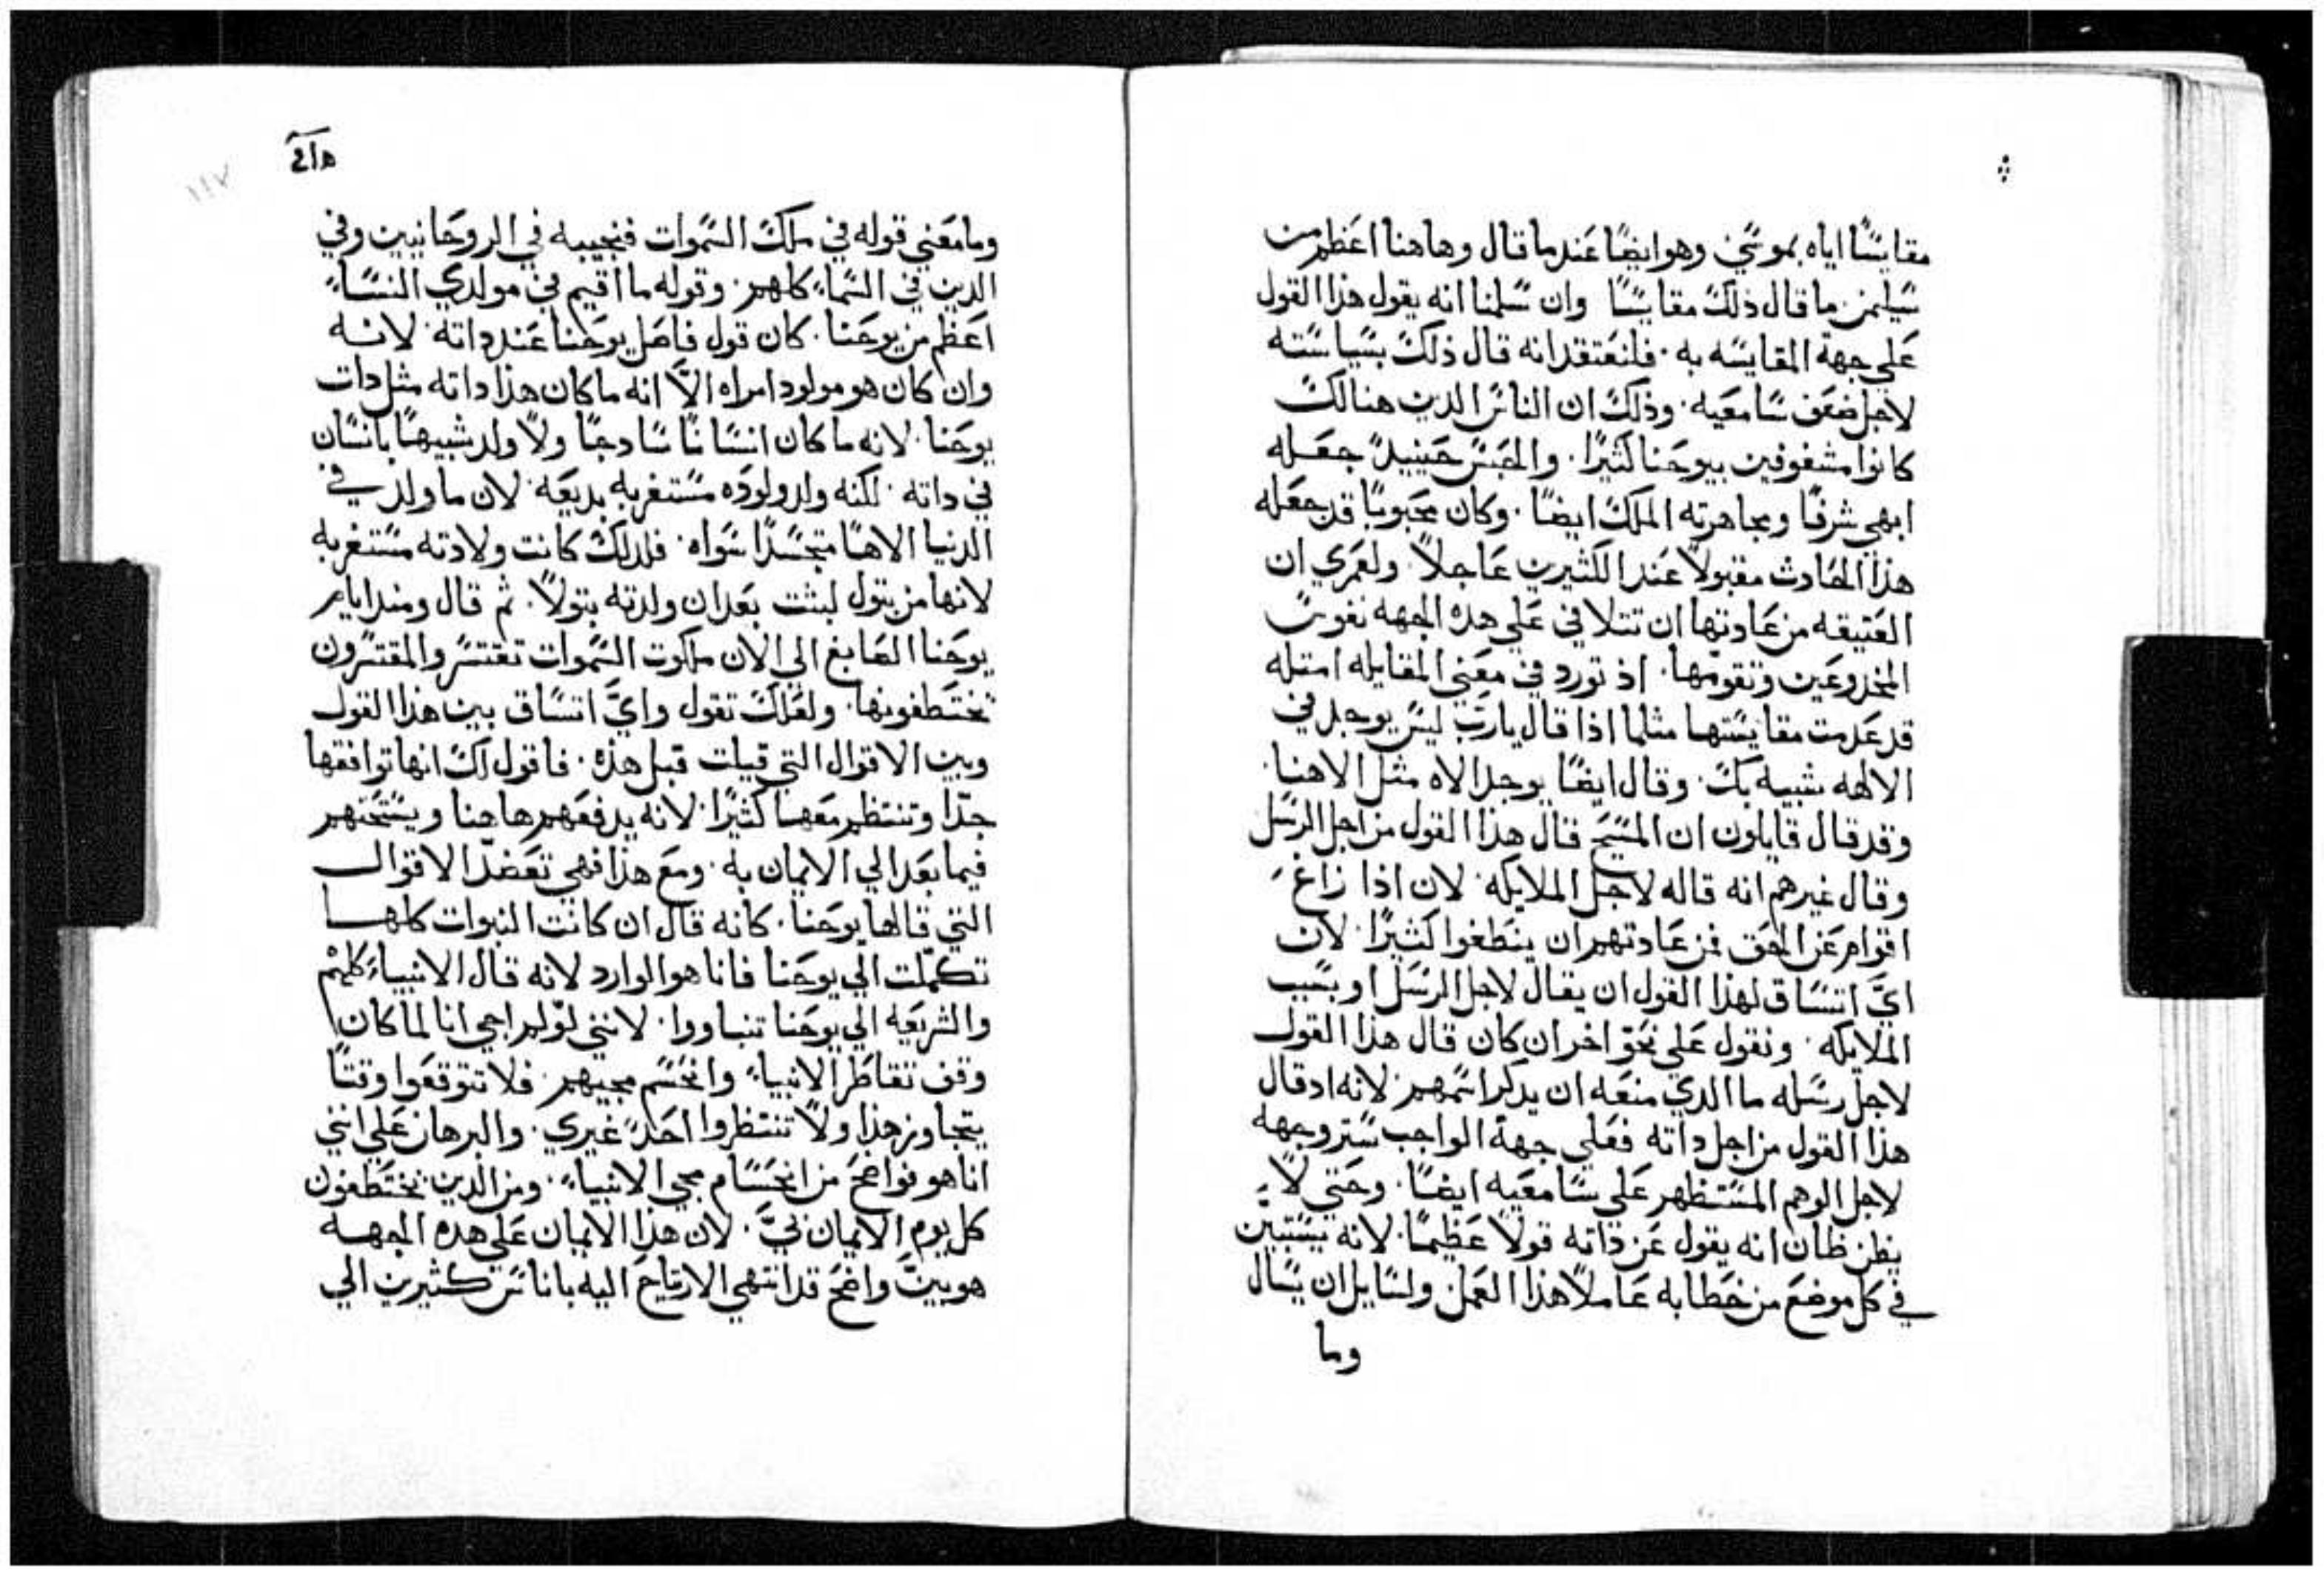 مقايسًا اياه بموسي وهو ايضًا عند ما قال وهاهنا اعظم من
سليمن ما قال ذلك مقايسًا وان سلمنا انه يقول هذا القول
علي جهة المقايسه به. فلنعتقد انه قال ذلك بسياسته
لاجل ضعف سامعيه. وذلك ان الناس الدين هنالك
كانوا مشغوفين بيوحنا كثيرًا. والحبس حينيدٍ جعله
ابهي شرفًا ومجاهرته الملك ايضًا. وكان محبوبًا قد جعله
هذا الحادث مقبولًا عند الكثيرين عاجلًا. ولعمري ان
العتيقه من عادتها ان تتلافي علي هده الجهه نفوس
المخدوعين وتقومها. اذ تورد في معني المقابله امتله
قد عدمت مقايستها مثلما اذا قال يارب ليس يوجد في
الالهه شبيه بك. وقال ايضًا يوجد الاه مثل الاهنا.
وقد قال قايلون ان المسيح قال هذا القول من اجل الرسل
وقال غيرهم انه قاله لاجل الملايكه. لان اذا زاغ
اقوام عن الحق فمن عادتهم ان ينطغوا كثيرًا. لان
ايَّ اتساق لهذا القول ان يقال لاجل الرسل او بسبب
الملايكه. ونقول علي نحوٍ اخر ان كان قال هذا القول
لاجل رسله ما الدي منعه ان يدكر اسمهم. لانه اد قال
هذا القول من اجل داته فعلي جهة الواجب ستر وجهه
لاجل الوهم المستظهر علي سامعيه ايضًا. وحتي لا
يظن ظان انه يقول عن ذاته قولًا عظيمًا. لانه يستبين
في كل موضع من خطابه عاملًا هذا العمل. ولسايل ان يسال
وما
هاع
١١٧
وما معني قوله في ملك السموات فنجيبه في الروحانيين وفي
الدين في السماء كلهم. وقوله ما اقيم في مولدي النساء
اعظم من يوحنا. كان قول فاصل يوحنا عند داته. لانه
وان كان هو مولود امراه الَّا انه ما كان هذا داته مثل دات
يوحنا. لانه ما كان انسانًا سادجًا ولا ولد شبيهًا بانسان
في داته. لكنه ولد ولوده مستغربه بديعه. لان ما ولد في
الدنيا الاهًا متجسدًا سواه. فلدلك كانت ولادته مستغربه
لانها من بتول لبثت بعد ان ولدته بتولًا. ثم قال ومند ايام
يوحنا الصابغ الي الان ملكوت السموات تقتسر والمقتسرون
يختطفونها. ولعلك تقول وايَّ اتساق بين هذا القول
وبين الاقوال التي قيلت قبل هذه. فاقول لك انها توافقها
جدًا وتنتظم معها كثيرًا. لانه يدفعهم هاهنا ويستحثهم
فيما بعد الي الايمان به. ومع هذا فهي تعضد الاقوال
التي قالها يوحنا. كانه قال ان كانت النبوات كلها
تكملت الي يوحنا فانا هو الوارد لانه قال الانبياء كلهم
والشريعه الي يوحنا تنباووا. لانني لو لم اجي انا لما كان
وقف تقاطر الانبياء. وانحسم مجيهم. فلا تتوقعوا وقتًا
يتجاوز هذا ولا تنتظروا احدً غيري. والبرهان علي انني
انا هو فواضح من انحسام مجي الانبياء. ومن الدين يختطفون
كل يوم الايمان بيَّ. لان هذا الايمان علي هده الجهه
هو بينٌ واضح قد انتهي الارتياح اليه باناس كثيرين الي